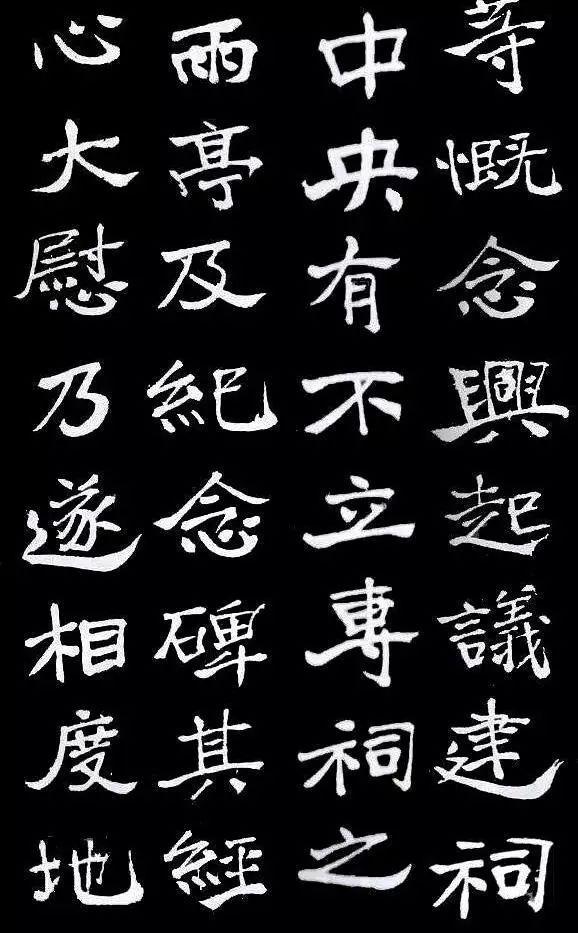 等慨念興起議建祠
中央有不立專祠之
雨亭及紀念碑其經
心大慰乃遂相度地